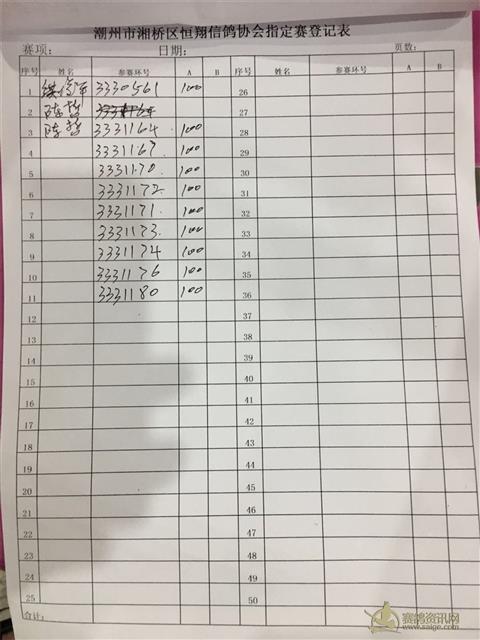 潮州市湘桥区恒翔信鸽协会指定赛登记表
赛项: 日期: 页数:
序号 姓名 参赛环号 A B 序号 姓名 参赛环号 A B
1 3330561 100 26
2 陈哲 27
3 陈哲 3331164 100 28
4 3331167 100 29
5 3331170 100 30
6 3331172 100 31
7 3331171 100 32
8 3331173 100 33
9 3331174 100 34
10 3331176 100 35
11 3331180 100 36
12 37
13 38
14 39
15 40
16 41
17 42
18 43
19 44
20 45
21 46
22 47
23 48
24 49
25 50
合计:
赛鸽资讯网
www.saige.com